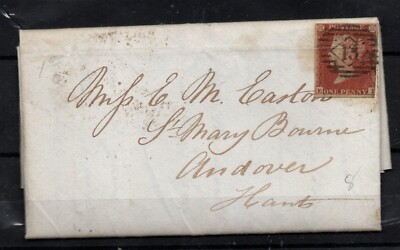 POSTAGE
13
ONE PENNY
Miss E. M. Easton
St Mary Bourne
Andover
Hants
8